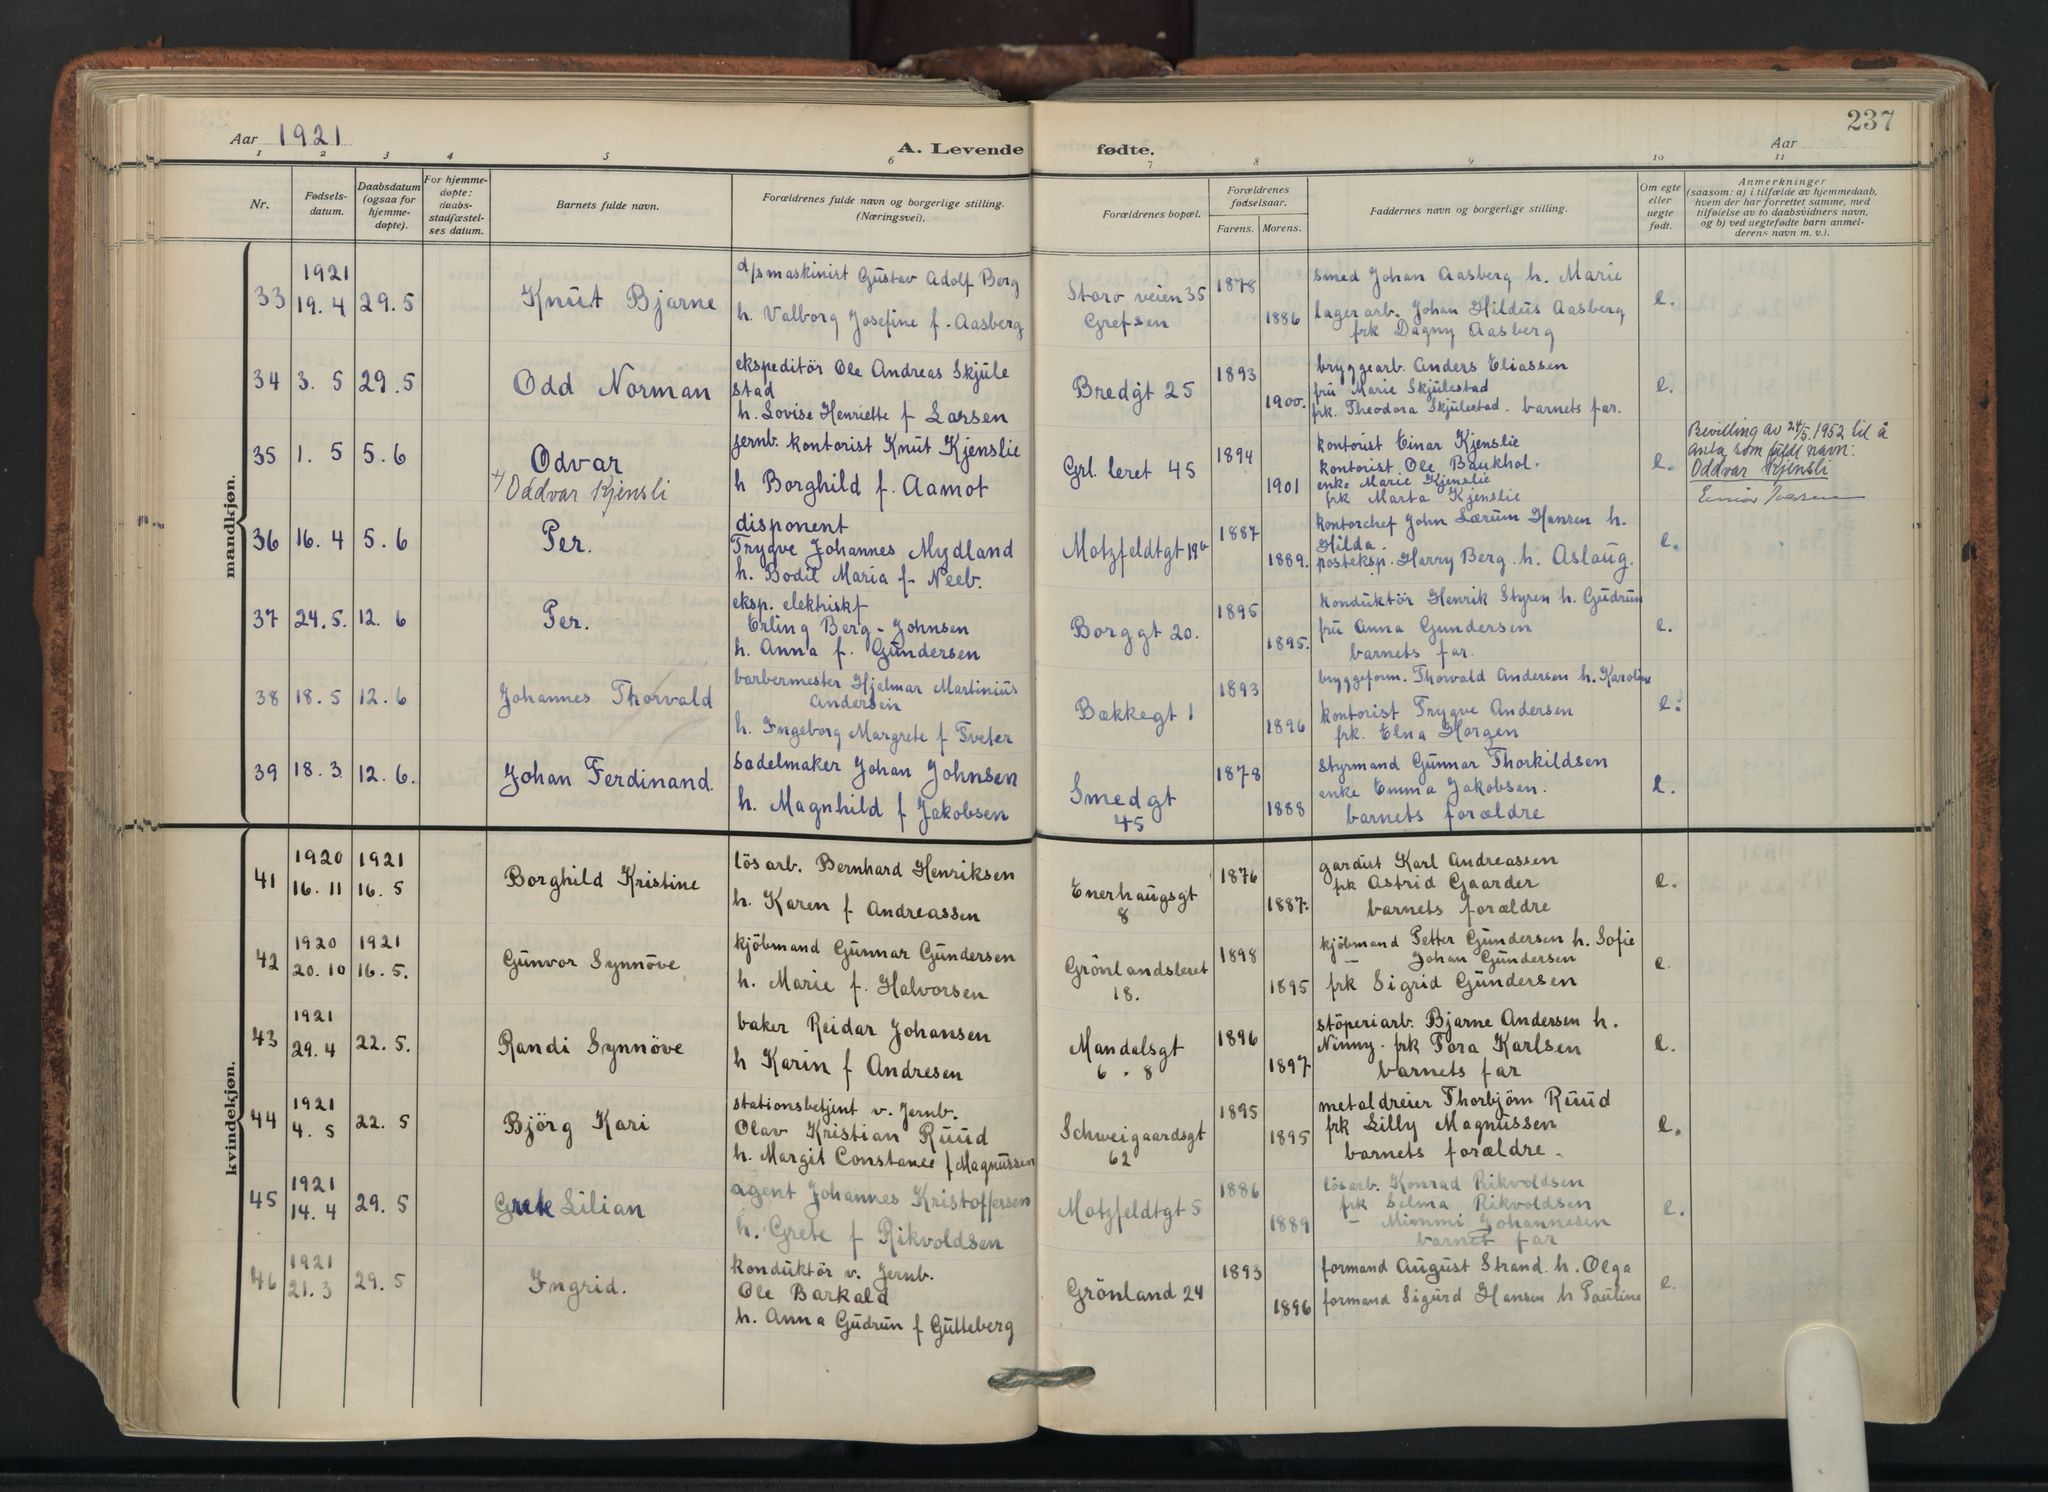 237
Aar 1921
A. Levende fødte.
Aar
1 2 3 4 5 6 7 8 9 10 11
Nr.
Fødsels-
datum.
Daabsdatum
(ogsaa for
hjemme-
døpte).
For hjemme-
døpte:
daabs-
stadfæstel-
ses datum.
Barnets fulde navn.
Forældrenes fulde navn og borgerlige stilling.
(Næringsvei).
Forældrenes bopæl.
Forældrenes
fødselsaar.
Farens. Morens.
Faddernes navn og borgerlige stilling.
Om egte
eller
uegte
født.
Anmerkninger
(saasom: a) i tilfælde av hjemmedaab,
hvem der har forrettet samme, med
tilføielse av to daabsvidners navn,
og b) ved uegtefødte barn anmel-
derens navn m. v.).
mandkjøn.
1921
33 19. 4 29. 5 Knut Bjarne
d/s maskinist Gustav Adolf Berg
h. Valborg Josefine f. Aasberg
Storo veien 35
Grefsen
1878
1886
smed Johan Aasberg h. Marie
lagerarb. Johan Hildus Aasberg
frk Dagny Aasberg
e.
34 3. 5 29. 5 Odd Norman
ekspeditör Ole Andreas Skjule
stad
h. Lovise Henriette f Larsen
Bredgt 25
1893
1900.
bryggearb. Anders Eliassen
fru Marie Skjulestad
frk. Theodora Skjulestad. barnets far.
e.
35 1. 5 5. 6 Odvar
+) Oddvar Kjensli
jernb. kontorist Knut Kjenslie
h Borghild f. Aamot
Grl. leret 45
1894
1901
kontorist Einar Kjenslie
kontorist Ole Baukhol.
enke Marie Kjenslie
frk Marta Kjenslie
e.
Bevilling av 24/5.1952 til å
anta som fullt navn:
Oddvar Kjensli
36 16. 4 5. 6 Per.
disponent
Trygve Johannes Mydland
h. Bodil Maria f. Neeb.
Motzfeldtgt 19b
1887
1889.
kontorchef John Lærum Hansen h.
Hilda.
posteksp. Harry Berg. h. Aslaug.
e.
37 24. 5. 12. 6 Per.
eksp. elektriskf
Erling Berg-Johnsen
h. Anna f. Gundersen
Borggt 20.
1895
1895.
konduktör Henrik Styren h. Gudrun
fru Anna Gundersen
barnets far.
e.
38 18. 5 12. 6 Johannes Thorvald
barbermester Hjalmar Martinius
Andersen
h. Ingeborg Margrete f Tveter
Bækkegt 1
1893
1896
bryggeform. Thorvald Andersen h. Karoline
kontorist Trygve Andersen
frk. Elna Horgen
e.
39 18. 3 12. 6. Johan Ferdinand.
sadelmaker Johan Johnsen
h. Magnhild f Jakobsen
Smedgt
45
1878
1888
styrmand Gunnar Thorkildsen
enke Emma Jakobsen.
barnets forældre
e.
kvindekjøn.
1920 1921
41 16. 11 16. 5 Borghild Kristine
lösarb. Bernhard Henriksen
h. Karen f. Andreassen
Enerhaugsgt
8
1876
1887.
gardist Karl Andreassen
frk Astrid Gaarder
barnets forældre
e.
1920 1921
42 20. 10 16. 5. Gunvor Synnöve
kjöbmand Gunnar Gundersen
h. Marie f. Halvorsen
Grönlandsleret
18.
1898
1895
kjöbmand Petter Gundersen h. Sofie
— Johan Gundersen
frk Sigrid Gundersen
e.
1921
43 29. 4 22. 5. Randi Synnöve
baker Reidar Johansen
h Karin f Andresen
Mandalsgt
6 - 8
1896
1897
stöperiarb. Bjarne Andersen h.
Ninny. frk Tora Karlsen
barnets far
e.
1921
44 4. 5 22. 5 Björg Kari
stationsbetjent v. Jernb.
Olav Kristian Ruud
h. Margit Constance f Magnussen
Schweigaardsgt
62
1895
1895
metaldreier Thorbjörn Ruud
frk Lilly Magnussen
barnets forældre.
e.
1921
45 14. 4 29. 5 Grete Lilian
agent Johannes Kristoffersen
h. Grete f Rikvoldsen
Motzfeldtgt 5
1886
1889
lösarb. Konrad Rikvoldsen
frk Selma Rikvoldsen
— Mimmi Johannesen
barnet far
e.
1921
46 21. 3 29. 5 Ingrid.
konduktör v. Jernb.
Ole Barkald
h. Anna Gudrun f Gutteberg
Grönland 24
1893
1896
formand August Strand. h. Olga
formand Sigurd Hansen h Pauline
e.